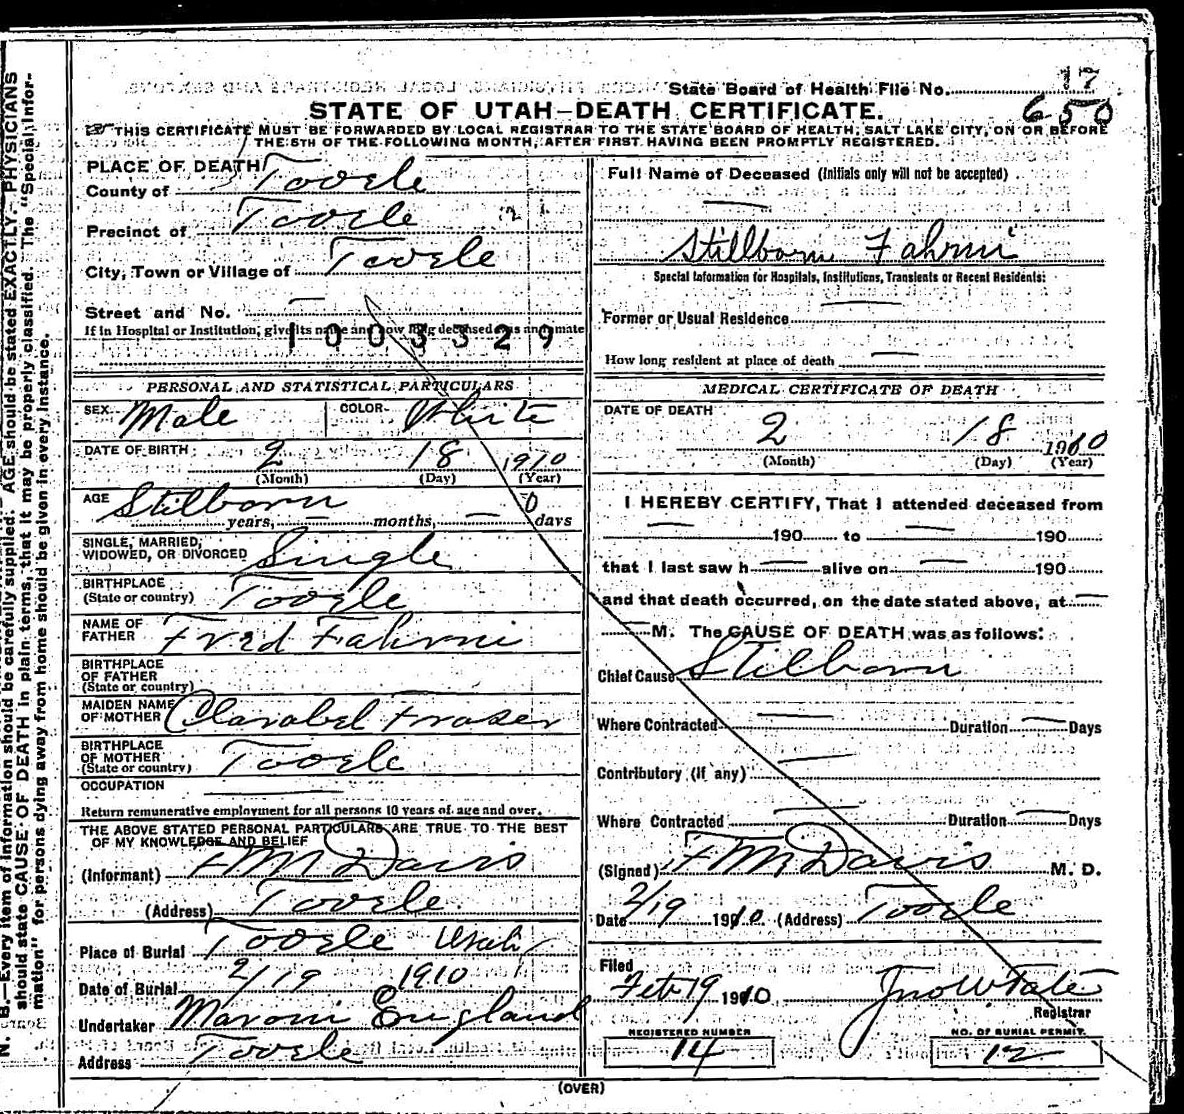 State Board of Health File No. 17
650
STATE OF UTAH—DEATH CERTIFICATE.
THIS CERTIFICATE MUST BE FORWARDED BY LOCAL REGISTRAR TO THE STATE BOARD OF HEALTH, SALT LAKE CITY, ON OR BEFORE
THE 5TH OF THE FOLLOWING MONTH, AFTER FIRST HAVING BEEN PROMPTLY REGISTERED.
PLACE OF DEATH
County of Tooele
Precinct of Tooele
City, Town or Village of Tooele
Street and No. —
If in Hospital or Institution, give its name and how long deceased was an inmate
1003329
PERSONAL AND STATISTICAL PARTICULARS
SEX Male COLOR White
DATE OF BIRTH 2 18 1910
(Month) (Day) (Year)
AGE Stilborn 0
years, — months, — days
SINGLE, MARRIED,
WIDOWED, OR DIVORCED Single
BIRTHPLACE
(State or country) Tooele
NAME OF
FATHER Fred Fahrni
BIRTHPLACE
OF FATHER
(State or country)
MAIDEN NAME
OF MOTHER Clarabel Fraser
BIRTHPLACE
OF MOTHER
(State or country) Tooele
OCCUPATION —
Return remunerative employment for all persons 10 years of age and over.
THE ABOVE STATED PERSONAL PARTICULARS ARE TRUE TO THE BEST
OF MY KNOWLEDGE AND BELIEF
(Informant) F M Davis
(Address) Tooele
Place of Burial Tooele Utah
Date of Burial 2/19 1910
Undertaker Maroni England
Address Tooele
Full Name of Deceased (Initials only will not be accepted)
—
Stillborn Fahrni
Special Information for Hospitals, Institutions, Transients or Recent Residents:
Former or Usual Residence —
How long resident at place of death —
MEDICAL CERTIFICATE OF DEATH
DATE OF DEATH
2 18 1910
(Month) (Day) (Year)
I HEREBY CERTIFY, That I attended deceased from
— 190 to — 190
that I last saw h — alive on — 190
and that death occurred, on the date stated above, at —
— M. The CAUSE OF DEATH was as follows:
Chief Cause Stilborn
Where Contracted — Duration — Days
Contributory (if any) —
Where Contracted — Duration — Days
(Signed) F M Davis M. D.
Date 2/19 1910 (Address) Tooele
Filed
Feb 19 1910 Jno W Tate
Registrar
REGISTERED NUMBER
14
NO. OF BURIAL PERMIT.
12
(OVER)
N. B.—Every item of information should be carefully supplied. AGE should be stated EXACTLY. PHYSICIANS
should state CAUSE OF DEATH in plain terms, that it may be properly classified. The "Special Infor-
mation" for persons dying away from home should be given in every instance.